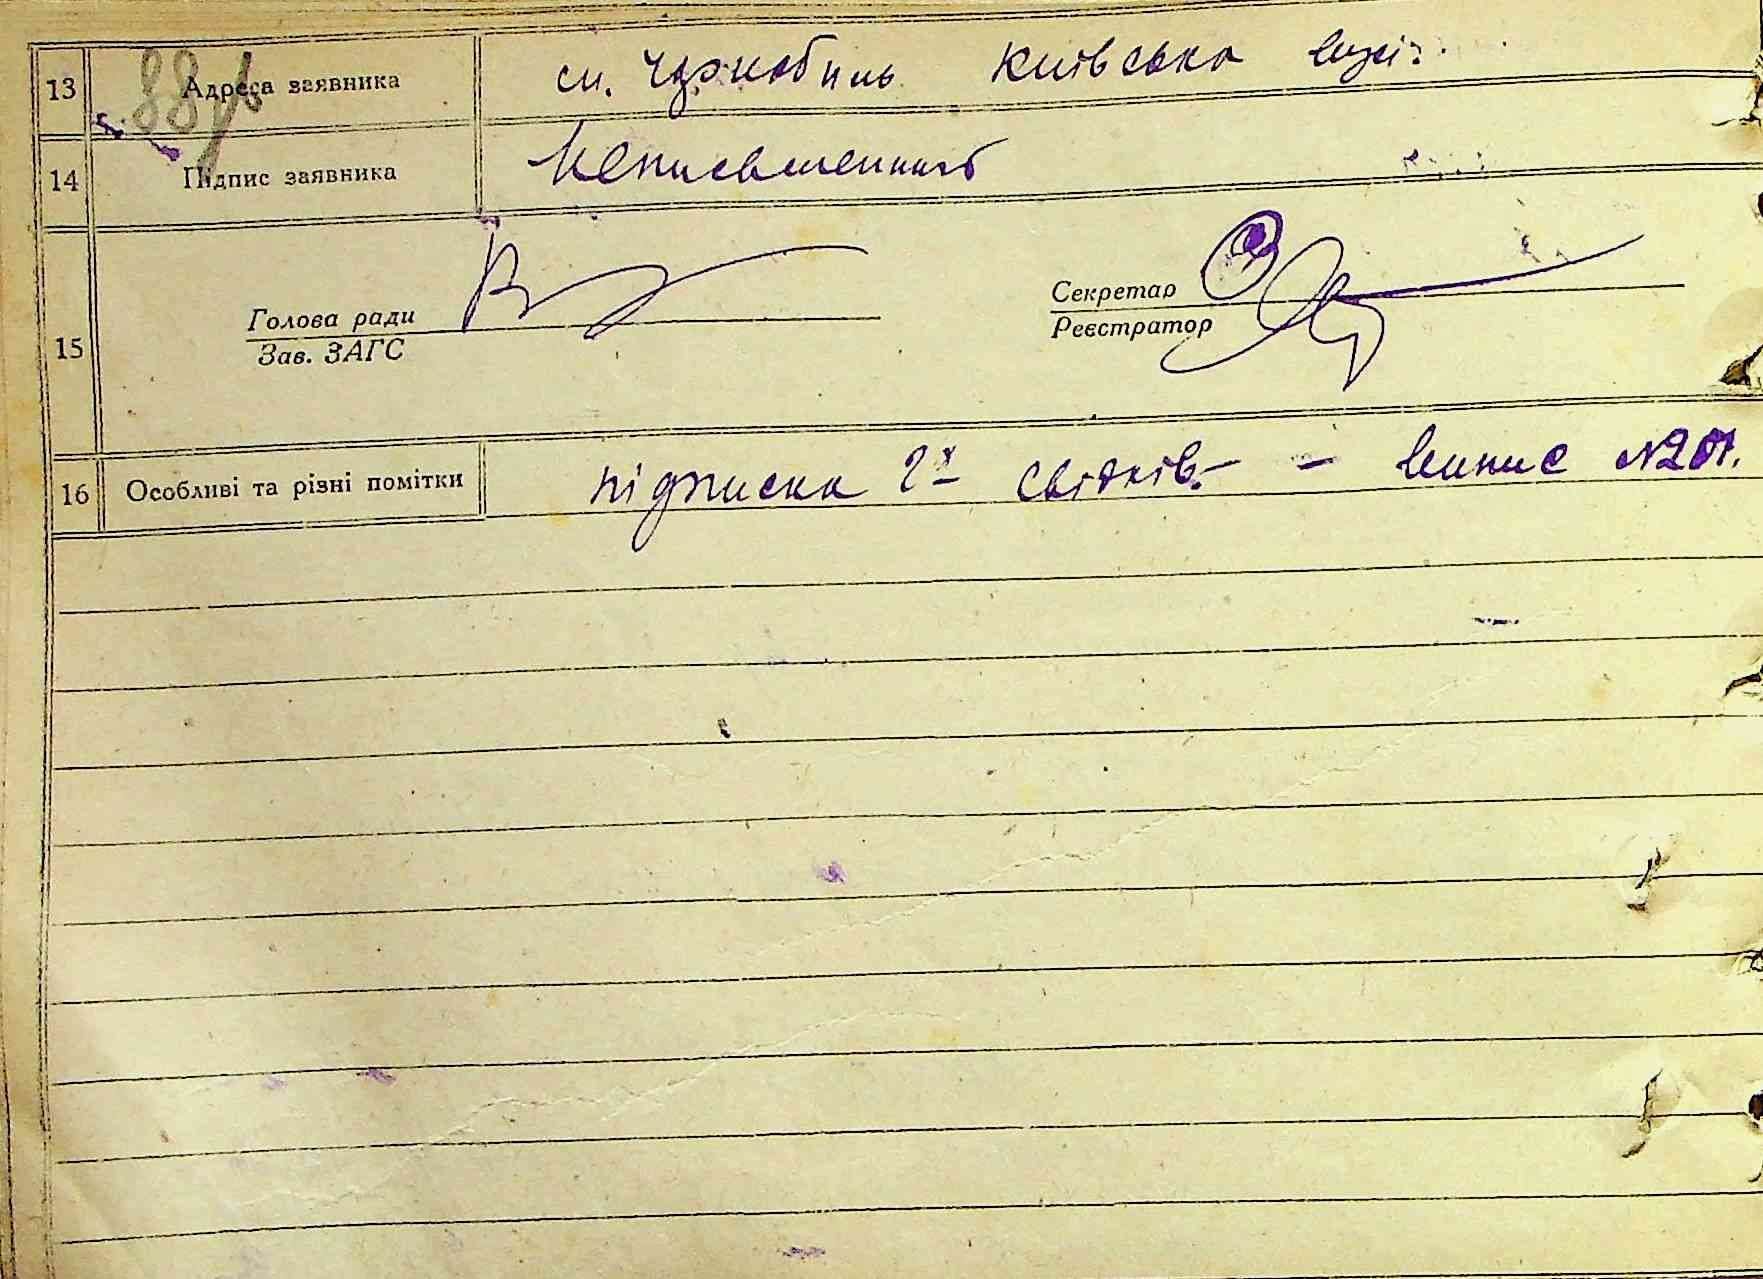 88
13 Адреса заявника см. Чорнобиль Київська вул.
14 Підпис заявника Неписьменний
Голова ради Секретар
15 Зав. ЗАГС Реєстратор
16 Особливі та різні помітки підписка 2х свідків. – – випис №201.